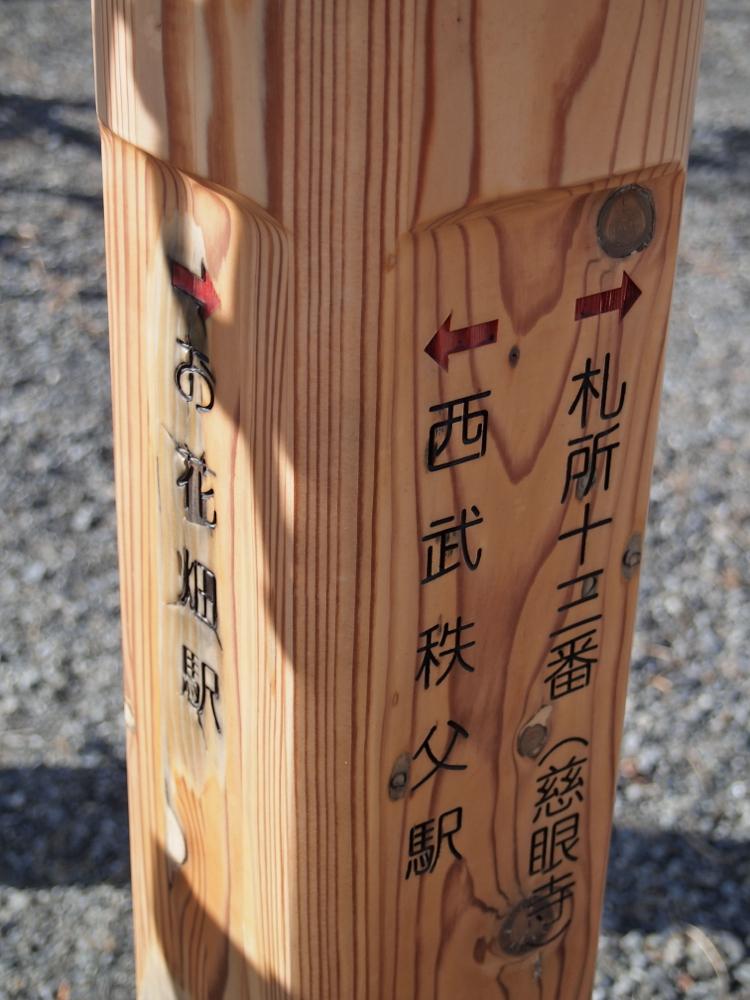 →
お花畑駅
→
札所十三番(慈眼寺)
←
西武秩父駅